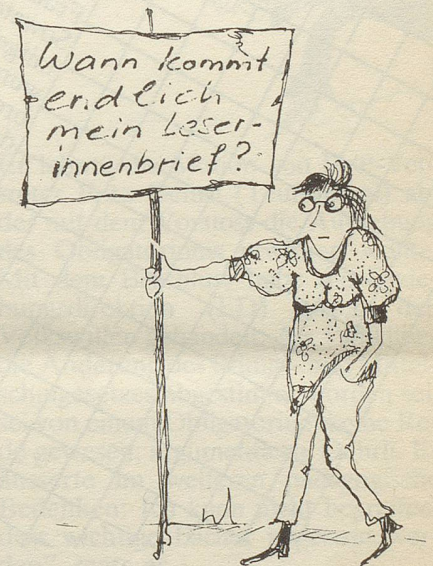 Wann kommt
endlich
mein Leser-
innenbrief?